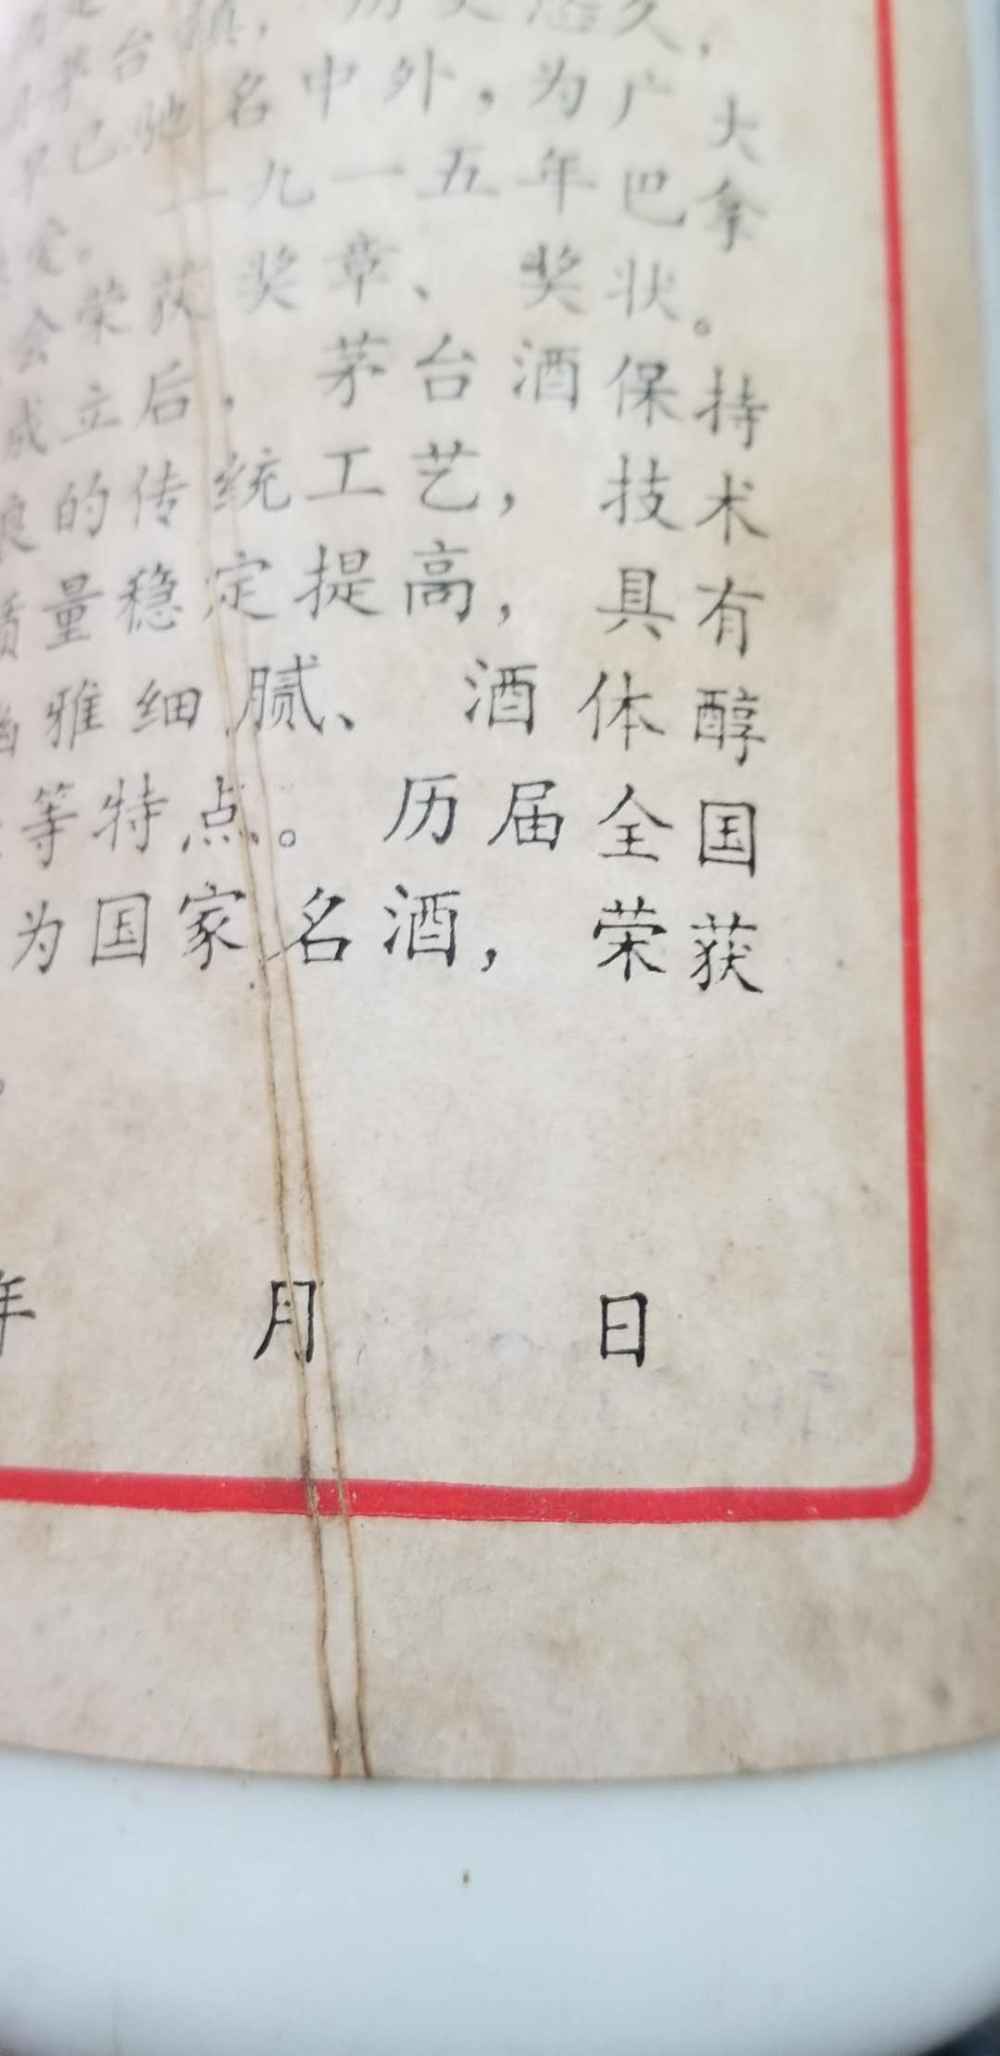 镇，历史悠久，
茅台
早已驰名中外，为广大
爱。一九一五年巴拿
会荣获奖章、奖状。
成立后，茅台酒保持
良的传统工艺，技术
质量稳定提高，具有
幽雅细腻、酒体醇
等特点。历届全国
为国家名酒，荣获
。
年 月 日